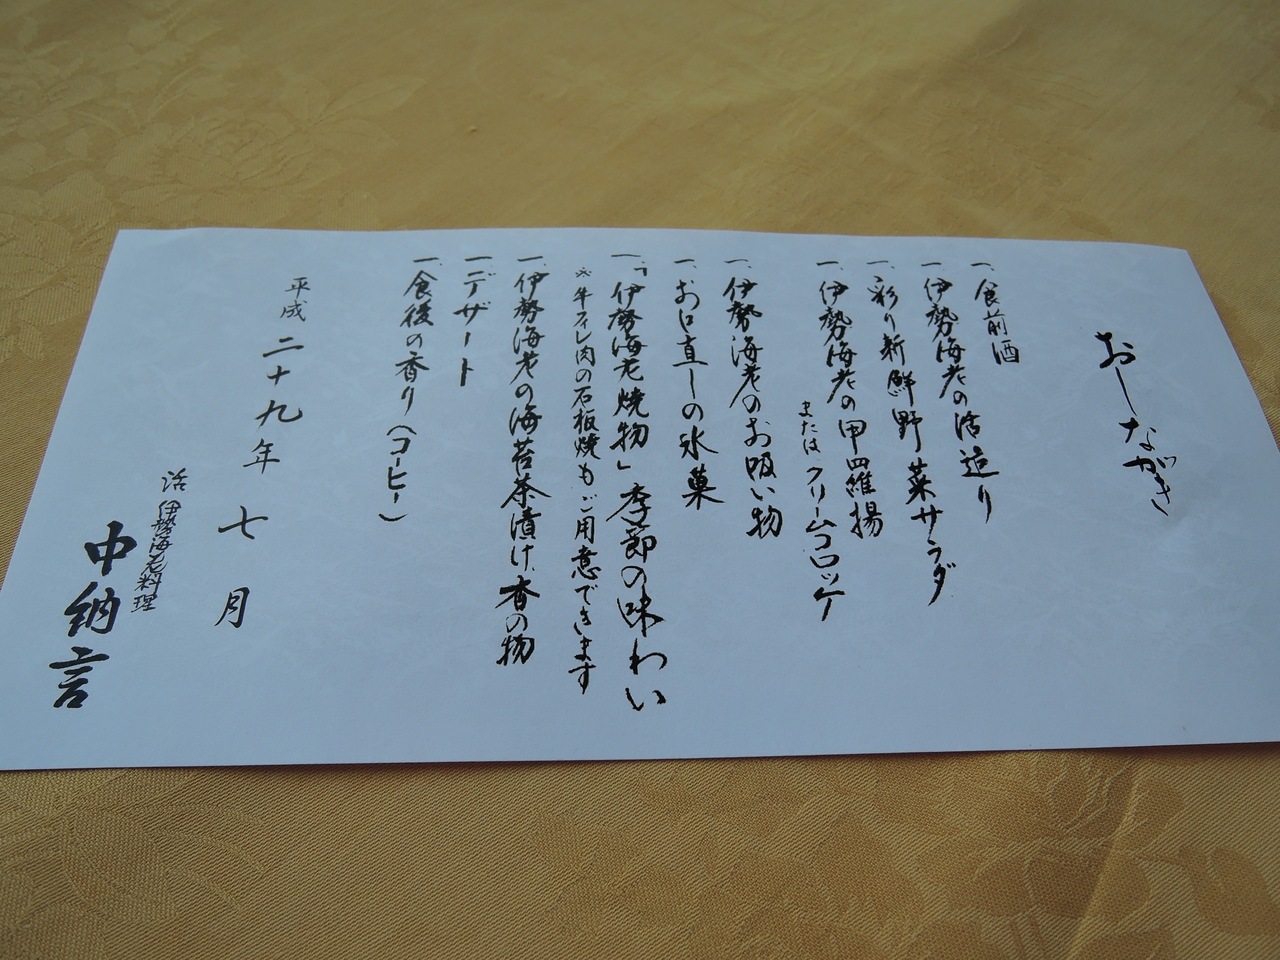 おしながき
一、食前酒
一、伊勢海老の活造り
一、彩り新鮮野菜サラダ
一、伊勢海老の甲羅揚
または、クリームコロッケ
一、伊勢海老のお吸い物
一、お口直しの氷菓
一、「伊勢海老焼物」季節の味わい
※牛フィレ肉の石板焼もご用意できます
一、伊勢海老の海苔茶漬け、香の物
一、デザート
一、食後の香り(コーヒー)
平成二十九年七月
活伊勢海老料理
中納言